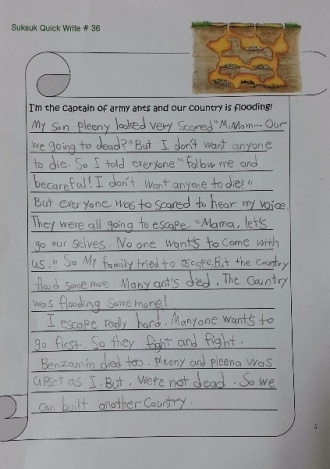 Suksuk Quick Write # 36
I'm the captain of army ants and our country is flooding!
My son pleeny looked very scared "M.Mom... Our
we going to dead?" But I don't want anyone
to die. So I told everyone "follow me and
becareful! I don't want anyone to die!"
But everyone was to scared to hear my voice.
They were all going to escape. "Mama, let's
go our selves. No one wants to come with
us." So My family tried to escape. But the country
flood some more. Many ants died. The Country
was flooding some more!
I escape really hard. Manyone wants to
go first. So they fight and fight.
Benzamin died too. pleeny and pleena was
upset as I. But. Were not dead. So we
can built another country.